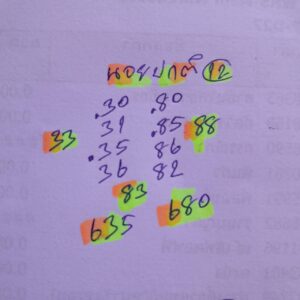 นอยปกาศ์ 12
.30 .80
31 .85 88
33 .35 86
36 82
83
635 680